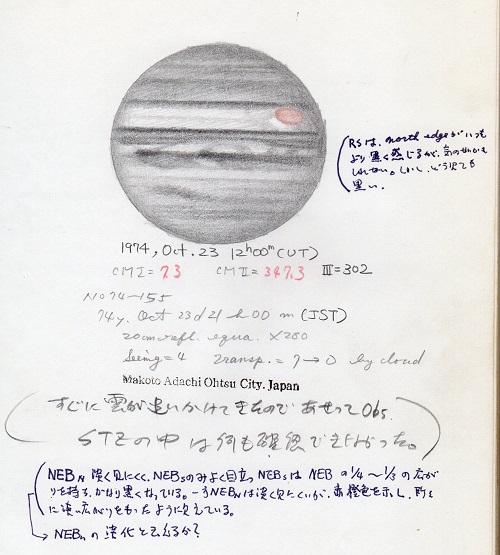 RSは、north edgeがいつも
より黒く感じるが、気のせいかも
しれない。しかし、どう見ても
黒い。
1974, Oct. 23 12h00m (UT)
CM I = 73 CM II = 347.3 III = 302
No 74-155
74y. Oct 23d 21h 00m (JST)
20cm refl. equa. X260
Seeing = 4 Transp. = 7 → 0 by cloud
Makoto Adachi Ohtsu City. Japan
すぐに雲が追いかけてきたのであせってObs.
STZの中は何も確認できなかった。
NEBN 淡く見にくく、NEBSのみよく目立つ。NEBSは NEBの 1/4〜1/3の広が
りを持ち、かなり黒くなっている。一方NEBNは淡く見にくいが、赤橙色を示し、
に淡い広がりをもったように見えている。
NEBnの淡化と云えるか?